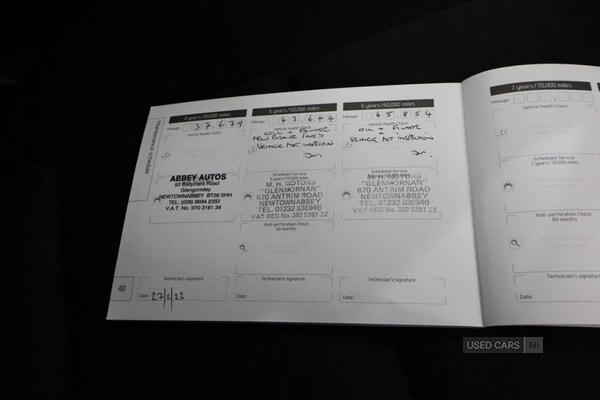 Maintenance schedule
4 years/40,000 miles
Mileage: 37,679
Vehicle Health Check
ABBEY AUTOS
63 Ballyclare Road
Glengormley
NEWTOWNABBEY BT36 5HH
TEL: (028) 9084 2353
V.A.T. No. 970 3181 34
Technician's signature
Date: 27/2/23
48
5 years/50,000 miles
Mileage: 43,644
Vehicle Health Check
OIL + FILTER
NEW BRAKE PADS
VEHICLE MOT INSPECTION
Scheduled Service
M. H. MOTORS
"GLENMORNAN"
670 ANTRIM ROAD
NEWTOWNABBEY
TEL. 01232 838946
VAT REG No. 392 5381 32
Anti-perforation Check
60 months
Technician's signature
Date:
6 years/60,000 miles
Mileage: 45,854
Vehicle Health Check
OIL + FILTER.
VEHICLE MOT INSPECTION
Scheduled Service
M. H. MOTORS
"GLENMORNAN"
670 ANTRIM ROAD
NEWTOWNABBEY
TEL. 01232 838946
VAT REG No. 392 5381 32
Technician's signature
Date:
7 years/70,000 miles
Mileage:
Vehicle Health Check
Scheduled Service
7 years/70,000 miles
Anti-perforation Check
84 months
Technician's signature
Date:
USED CARS NI